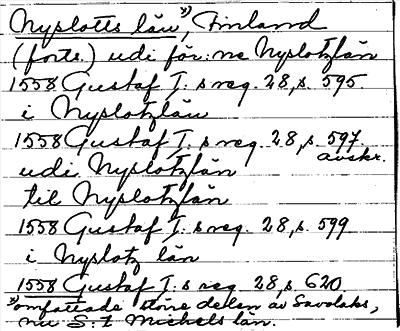 Nyslotts län ˣ⁾, Finland
(forts.) udi för:ne Nyslotzlän
1558 Gustaf I:s reg. 28, s. 595
i Nyslotzlän
1558 Gustaf I:s reg. 28, s. 597
avskr.
udi Nyslotzlän
til Nyslotzlän
1558 Gustaf I:s reg. 28, s. 599
i Nyslotz län
1558 Gustaf I:s reg. 28, s. 620
ˣ⁾ omfattade större delen av Savolaks,
nu S:t Michels län.